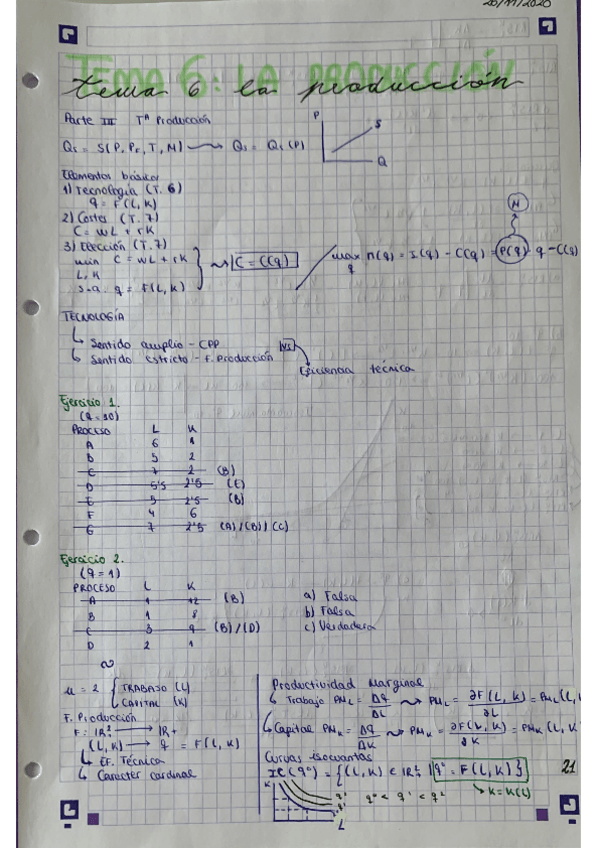 20/11/2020
TEMA 6: LA PRODUCCIÓN
tema 6 la producción
Parte III Tª Producción
P
S
Q
Qs = S(P, PF, T, N) → Qs = Qs (P)
Elementos básicos
1) Tecnología (T. 6)
q = F(L, K)
2) Costes (T. 7)
C = wL + rK
3) Elección (T. 7)
min C = wL + rK
L, K
s.a. q = F(L, K)
C = C(q)
N
max Π(q) = I(q) - C(q) = P(q) · q - C(q)
q
TECNOLOGÍA
↳ Sentido amplio - CPP
↳ Sentido estricto - F. Producción
VS
Eficiencia técnica
Ejercicio 1.
(q = 10)
PROCESO L K
A 6 1
B 5 2
C 7 2 (B)
D 5'5 2'5 (E)
E 5 2'5 (B)
F 4 6
G 7 2'5 (A)/(B)/(C)
Ejercicio 2.
(q = 1)
PROCESO L K
A 1 12 (B)
B 1 8
C 3 9 (B)/(D)
D 2 1
a) Falsa
b) Falsa
c) Verdadera
n = 2 { TRABAJO (L)
CAPITAL (K)
F. Producción
F: IR²₊ → IR₊
(L, K) → q = F(L, K)
↳ Ef. Técnica
↳ Carácter cardinal
Productividad Marginal
↳ Trabajo PML = Δq/ΔL → PML = ∂F(L, K)/∂L = PML (L,
↳ Capital PMK = Δq/ΔK → PMK = ∂F(L, K)/∂K = PMK (L, K
Curvas isocuantas
IC(q⁰) = {(L, K) ∈ IR²₊ | q⁰ = F(L, K)}
→ K = K(L)
21
K
q⁰ < q¹ < q²
L